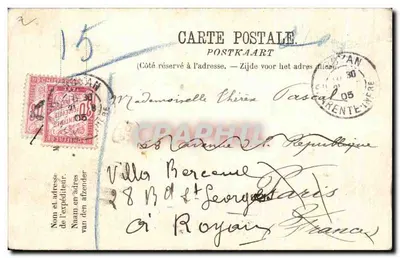 15
CARTE POSTALE
POSTKAART
(Côté réservé à l'adresse. - Zijde voor het adres
ROYAN
30
05
CHARENTE-INFRE
Mademoiselle Thérèse Pascal
Avenue de la République
Villa Berceuse
28 Bd St Georges
à Royan
Paris
France
Nom et adresse
de l'expéditeur.
Naam en adres
van den afzender